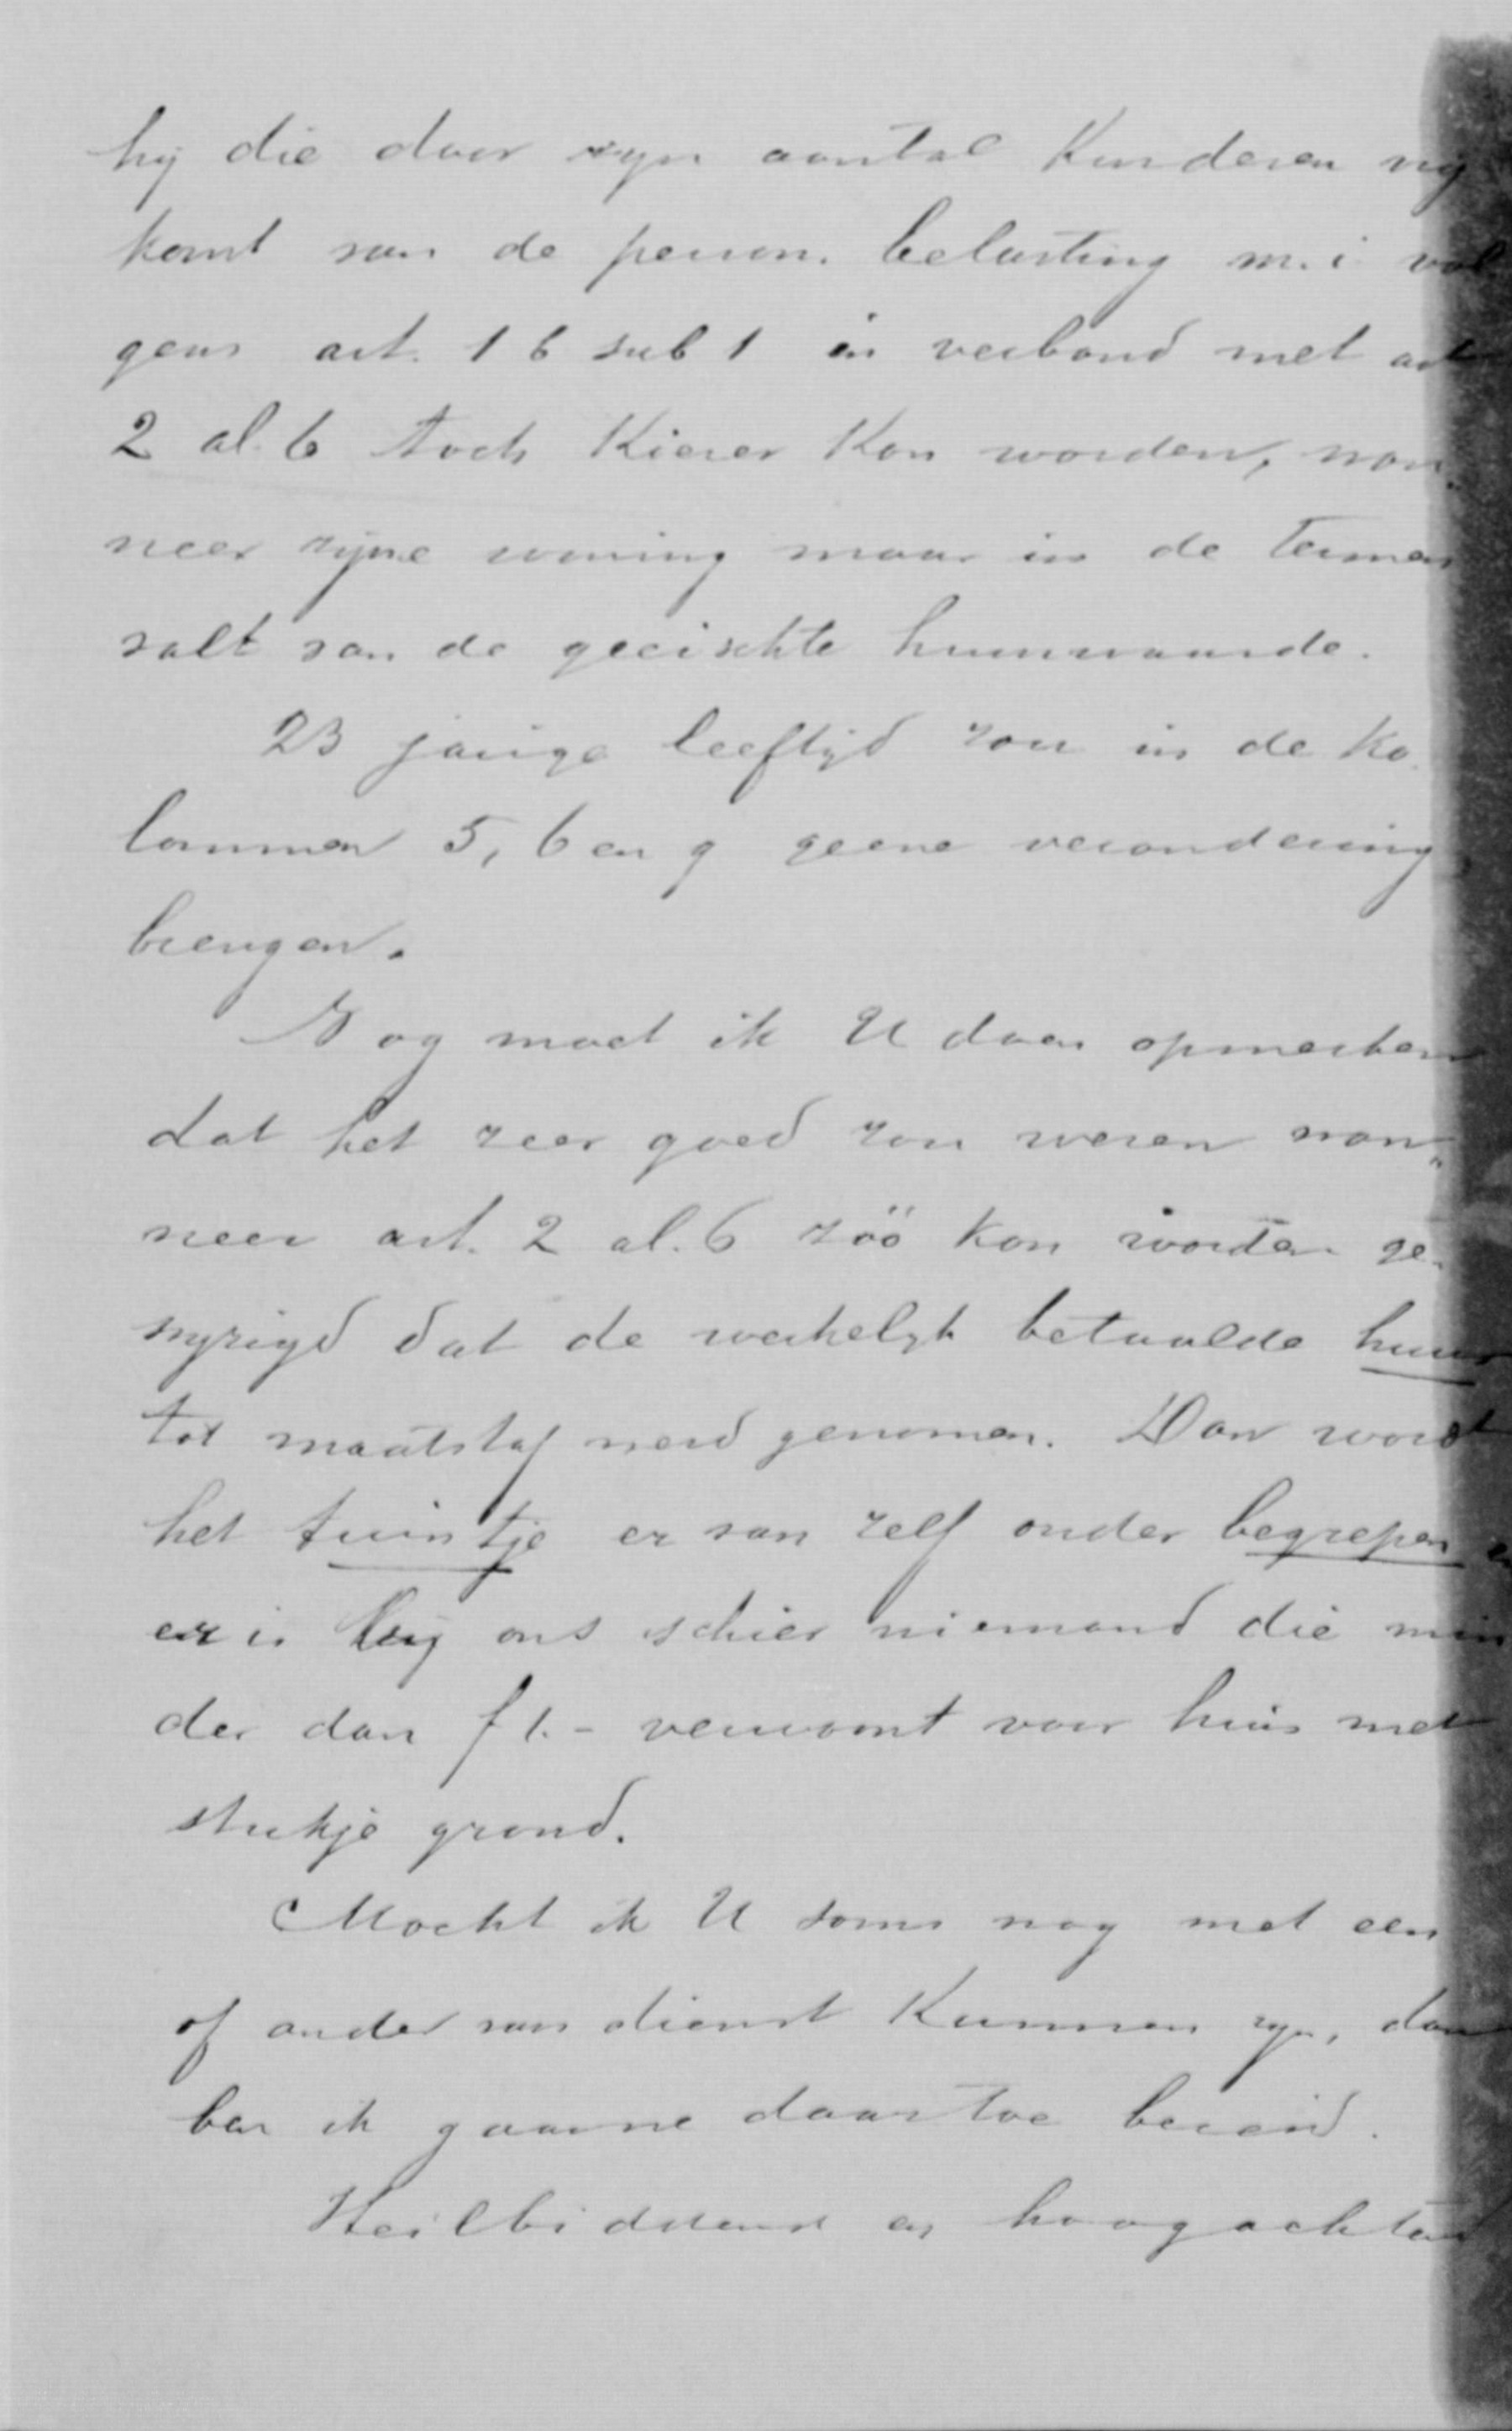 hij die door zijn aantal Kinderen vrij
komt van de person. belasting m. i vol
gens art. 1 b sub 1 in verband met art
2 al. 6 toch Kiezer Kon worden, wan„
neer zijne woning maar in de termen
valt van de geeischte huurwaarde.
23 jarige leeftijd zou in de ko„
lommen 5, 6 en g geene verandering
brengen.
Nog moet ik U doen opmerken
dat het zeer goed zou wezen wan„
neer art. 2 al. 6 zóó kon worden ge„
wyzigd dat de werkelyk betaalde huur
tot maatstaf werd genomen. Dan wordt
het tuintje er van zelf onder begrepen en
er is bij ons schier niemand die min
der dan f 1.- verwoont voor huis met
stukje grond.
Mocht ik U soms nog met een
of ander van dienst Kunnen zijn, dan
ben ik gaarne daartoe bereid.
Heilbiddend en hoogachtend